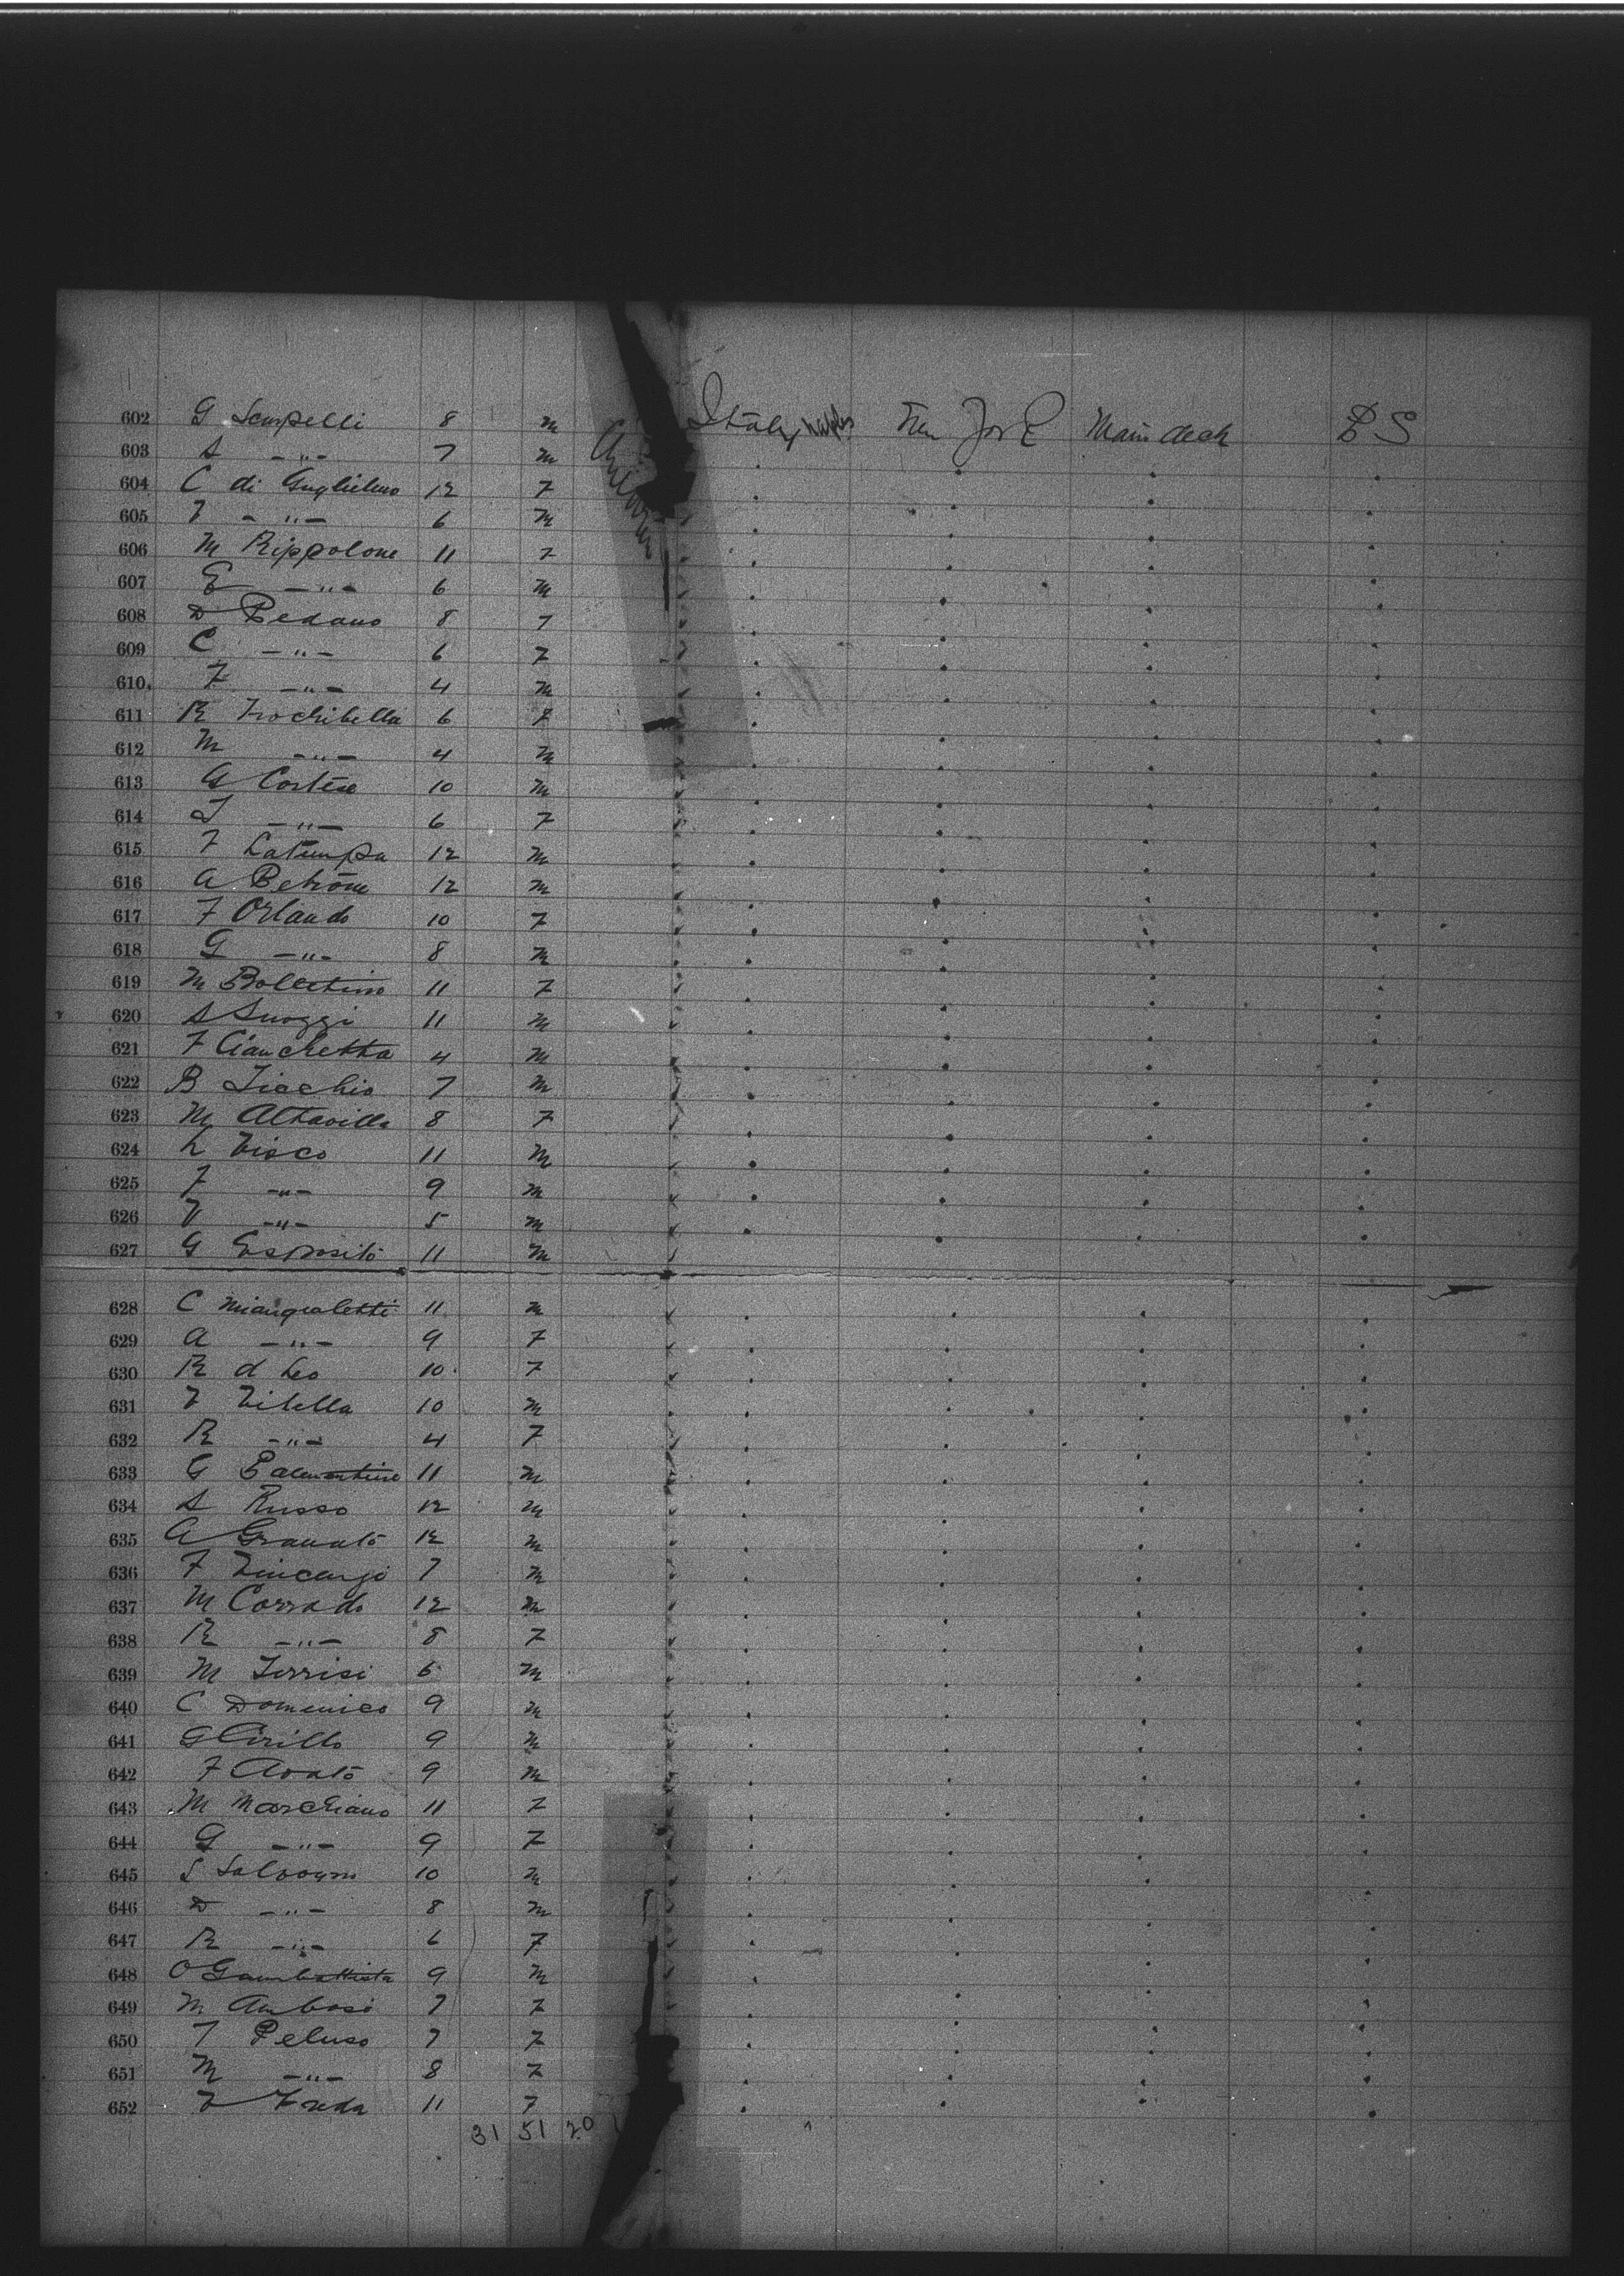 602 G Scarpelli 8 m Children Italy Naples New York Main deck P S
603 A -"- 7 m
604 C di Guglielmo 12 F
605 F -"- 6 m
606 M Rippolone 11 F
607 E -"- 6 m
608 D Pedano 8 F
609 C -"- 6 F
610 F -"- 4 m
611 R Trochibella 6 F
612 M -"- 4 m
613 G Cortese 10 m
614 T -"- 6 F
615 F Latempa 12 m
616 A Petrone 12 m
617 F Orlando 10 F
618 G -"- 8 m
619 M Bollettino 11 F
620 A 11 m
621 F Cianchetta 4 m
622 B 7 m
623 M Altavilla 8 F
624 L Visco 11 m
625 F -"- 9 m
626 V -"- 5 m
627 G Esposito 11 m
628 C Miangialetti 11 m
629 A -"- 9 F
630 R d Leo 10 F
631 V Vitella 10 m
632 R -"- 4 F
633 G 11 m
634 A Russo 12 m
635 A Granato 12 m
636 F 7 m
637 M Corrado 12 m
638 R -"- 8 F
639 M Torrisi 6 m
640 C Domenico 9 m
641 G Cirillo 9 m
642 F Avato 9 m
643 M Marchiano 11 F
644 G -"- 9 F
645 S 10 m
646 D -"- 8 m
647 R -"- 6 F
648 O Gambattista 9 m
649 M Ambosi 7 F
650 T Peluso 7 F
651 M -"- 8 F
652 V Freda 11 F
31 51 20